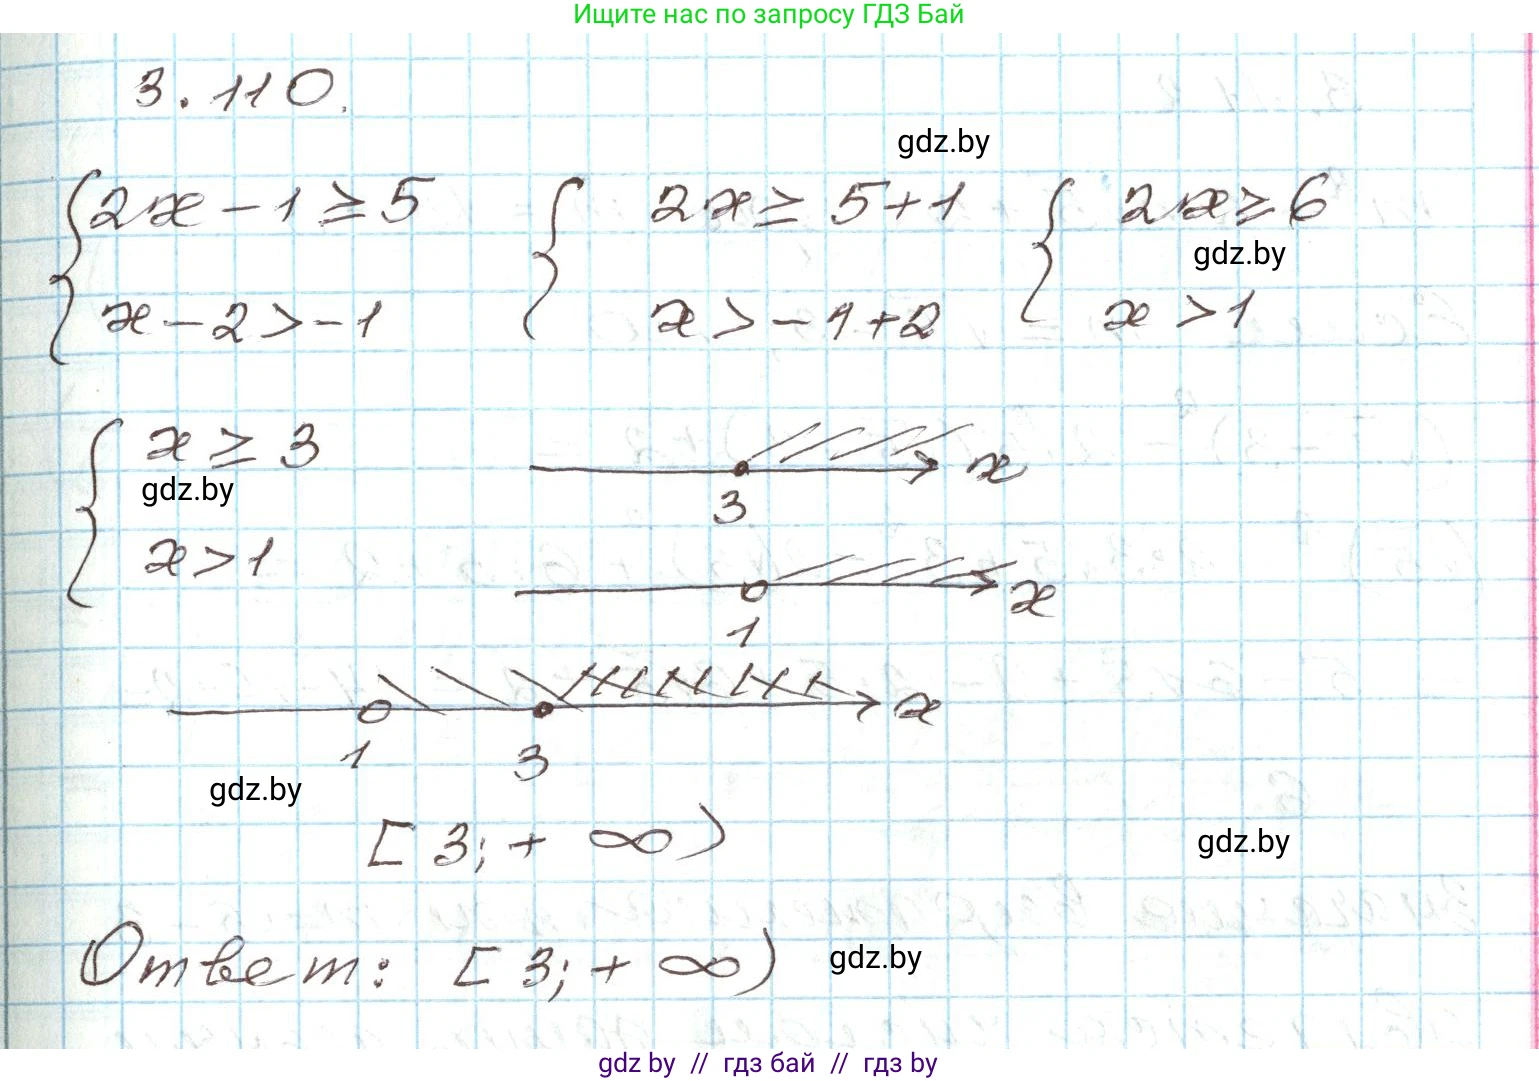 Ищите нас по запросу ГДЗ Бай
3.110.
gdz.by
{ 2x - 1 ≥ 5 { 2x ≥ 5+1 { 2x ≥ 6
gdz.by
x - 2 > -1 x > -1+2 x > 1
{ x ≥ 3 x
gdz.by 3
x > 1 x
1
x
1 3
gdz.by
[3; +∞)
gdz.by
Ответ: [3; +∞) gdz.by
gdz by // гдз бай // гдз by